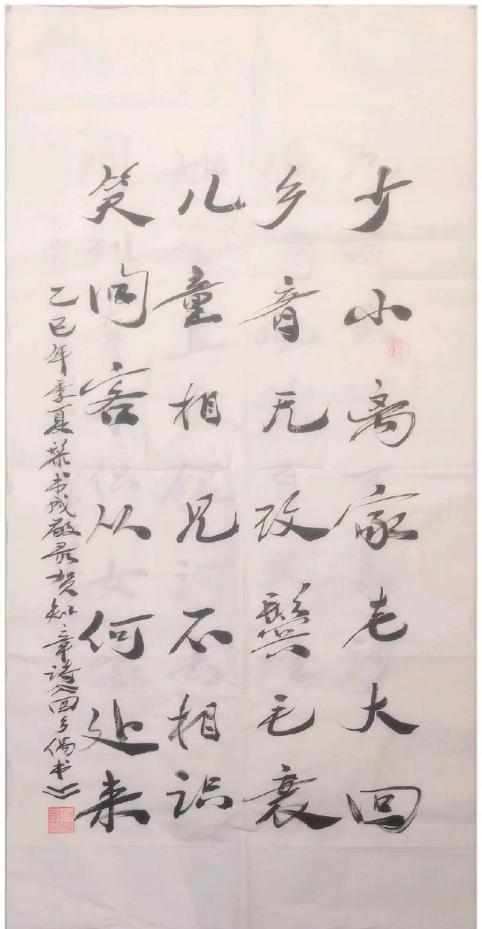 少小离家老大回
乡音无改鬓毛衰
儿童相见不相识
笑问客从何处来
乙巳年季夏梁书成敬录贺知章诗《回乡偶书》